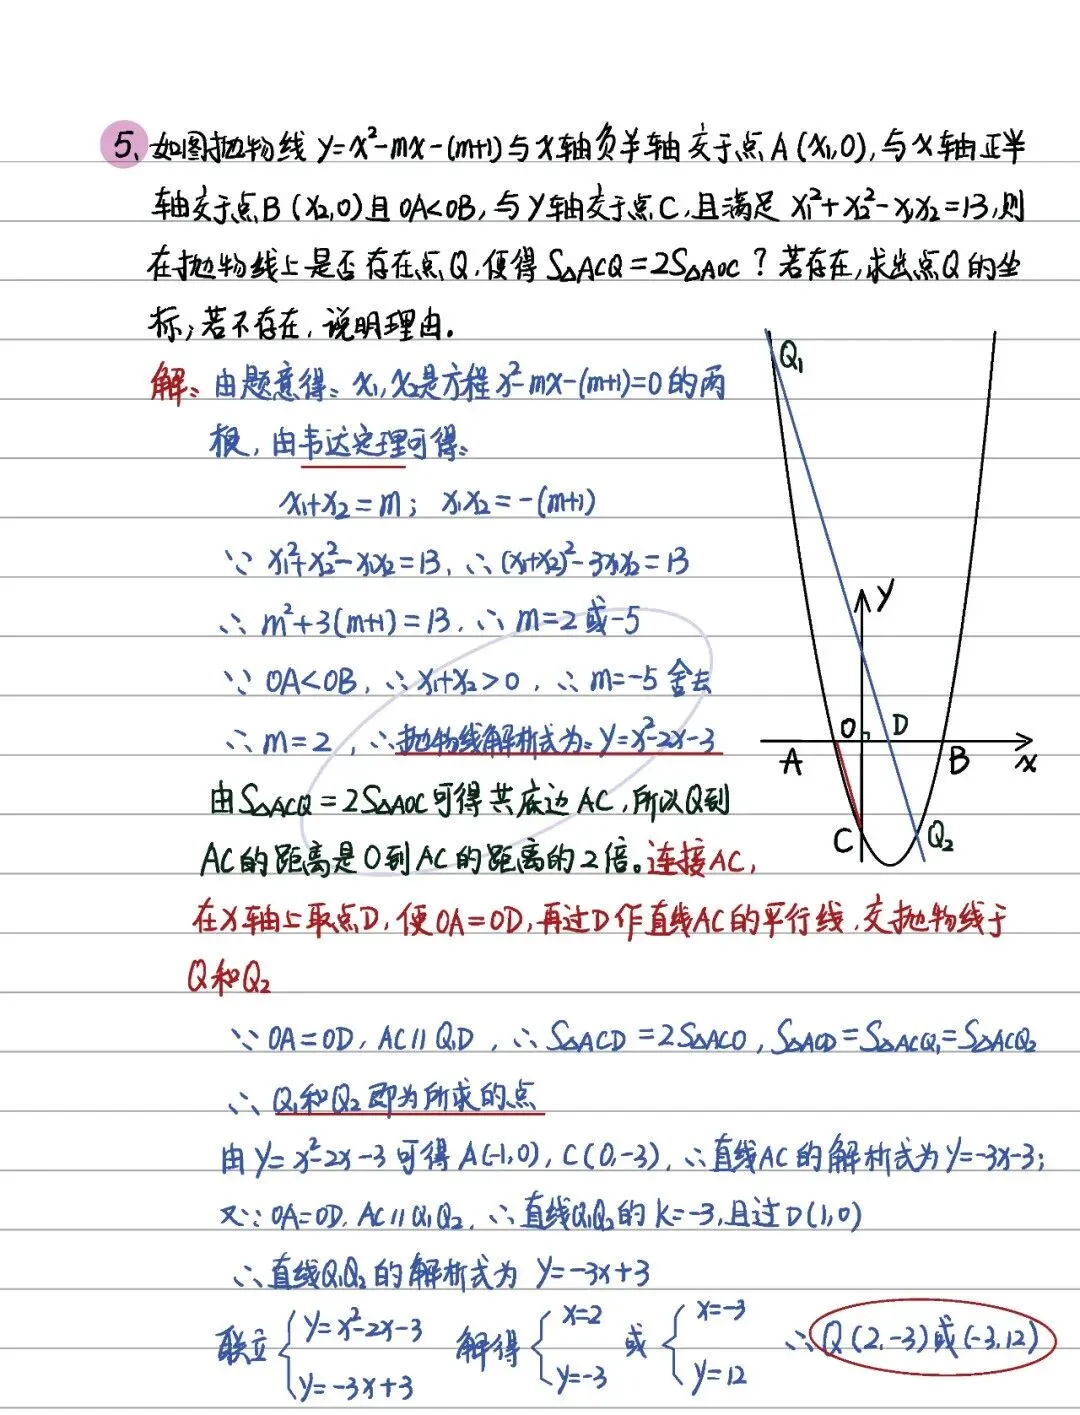 5、如图抛物线 y=x²-mx-(m+1)与x轴负半轴交于点A(x₁,0),与x轴正半
轴交于点B(x₂,0)且OA<OB,与y轴交于点C,且满足 x₁²+x₂²-x₁x₂=13,则
在抛物线上是否存在点Q,使得S△ACQ=2S△AOC?若存在,求出点Q的坐
标;若不存在,说明理由.
解:由题意得:x₁,x₂是方程x²-mx-(m+1)=0的两
根,由韦达定理可得:
x₁+x₂=m; x₁x₂=-(m+1)
∵ x₁²+x₂²-x₁x₂=13,∴(x₁+x₂)²-3x₁x₂=13
∴ m²+3(m+1)=13,∴ m=2或-5
∵ OA<OB,∴x₁+x₂>0,∴ m=-5舍去
∴ m=2,∴抛物线解析式为:y=x²-2x-3
由S△ACQ=2S△AOC可得共底边AC,所以Q到
AC的距离是O到AC的距离的2倍。连接AC,
在x轴上取点D,使OA=OD,再过D作直线AC的平行线,交抛物线于
Q和Q₂
∵ OA=OD,AC∥Q₁D,∴ S△ACD=2S△ACO,S△ACD=S△ACQ₁=S△ACQ₂
∴ Q₁和Q₂即为所求的点
由y=x²-2x-3可得A(-1,0),C(0,-3),∴直线AC的解析式为y=-3x-3;
又∵OA=OD,AC∥Q₁Q₂,∴直线Q₁Q₂的k=-3,且过D(1,0)
∴直线Q₁Q₂的解析式为 y=-3x+3
联立{y=x²-2x-3 解得{x=2 或{x=-3 ∴Q(2,-3)或(-3,12)
y=-3x+3 y=-3 y=12
Q₁
y
O D
A B x
C Q₂